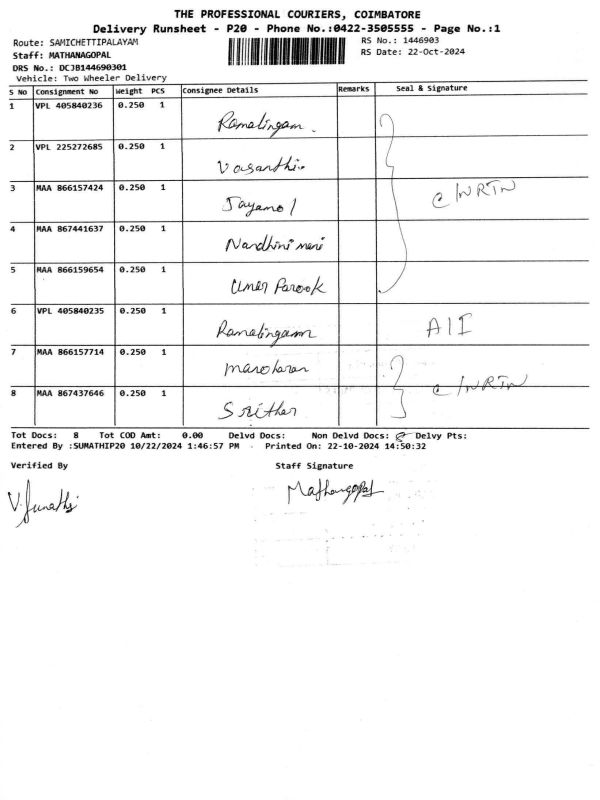 THE PROFESSIONAL COURIERS, COIMBATORE
Delivery Runsheet - P20 - Phone No.:0422-3505555 - Page No.:1
Route: SAMICHETTIPALAYAM RS No.: 1446903
Staff: MATHANAGOPAL RS Date: 22-Oct-2024
DRS No.: DCJB144690301
Vehicle: Two Wheeler Delivery
S No Consignment No Weight PCS Consignee Details Remarks Seal & Signature
1 VPL 405840236 0.250 1 Ramalingam.
2 VPL 225272685 0.250 1 Vasanthi.
3 MAA 866157424 0.250 1 Jayamol C/NRTN
4 MAA 867441637 0.250 1 Nandhini mani
5 MAA 866159654 0.250 1 Umer Farook
6 VPL 405840235 0.250 1 Ramalingam AII
7 MAA 866157714 0.250 1 manoharan
C/NRTN
8 MAA 867437646 0.250 1 Srither
Tot Docs: 8 Tot COD Amt: 0.00 Delvd Docs: Non Delvd Docs: 8 Delvy Pts:
Entered By :SUMATHIP20 10/22/2024 1:46:57 PM - Printed On: 22-10-2024 14:50:32
Verified By Staff Signature
V. Sumathi Mathangopal